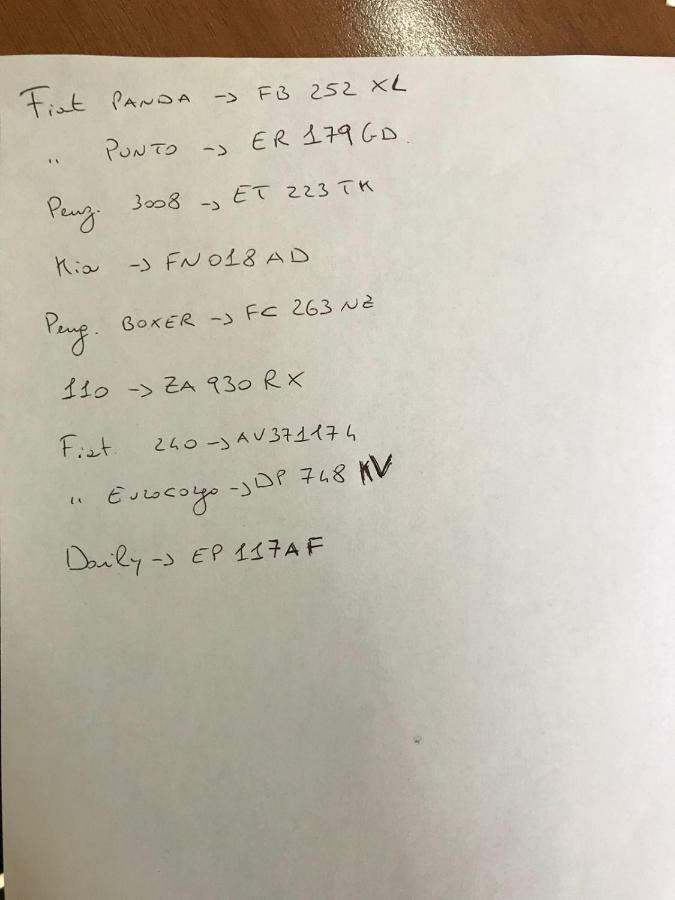 Fiat PANDA -> FB 252 XL
" PUNTO -> ER 179 GD
Peug. 3008 -> ET 223 TK
Kia -> FN 018 AD
Peug. BOXER -> FC 263 NZ
110 -> ZA 930 RX
Fiat 240 -> AV371174
" Eurocargo -> DP 748 KV
Daily -> EP 117 AF